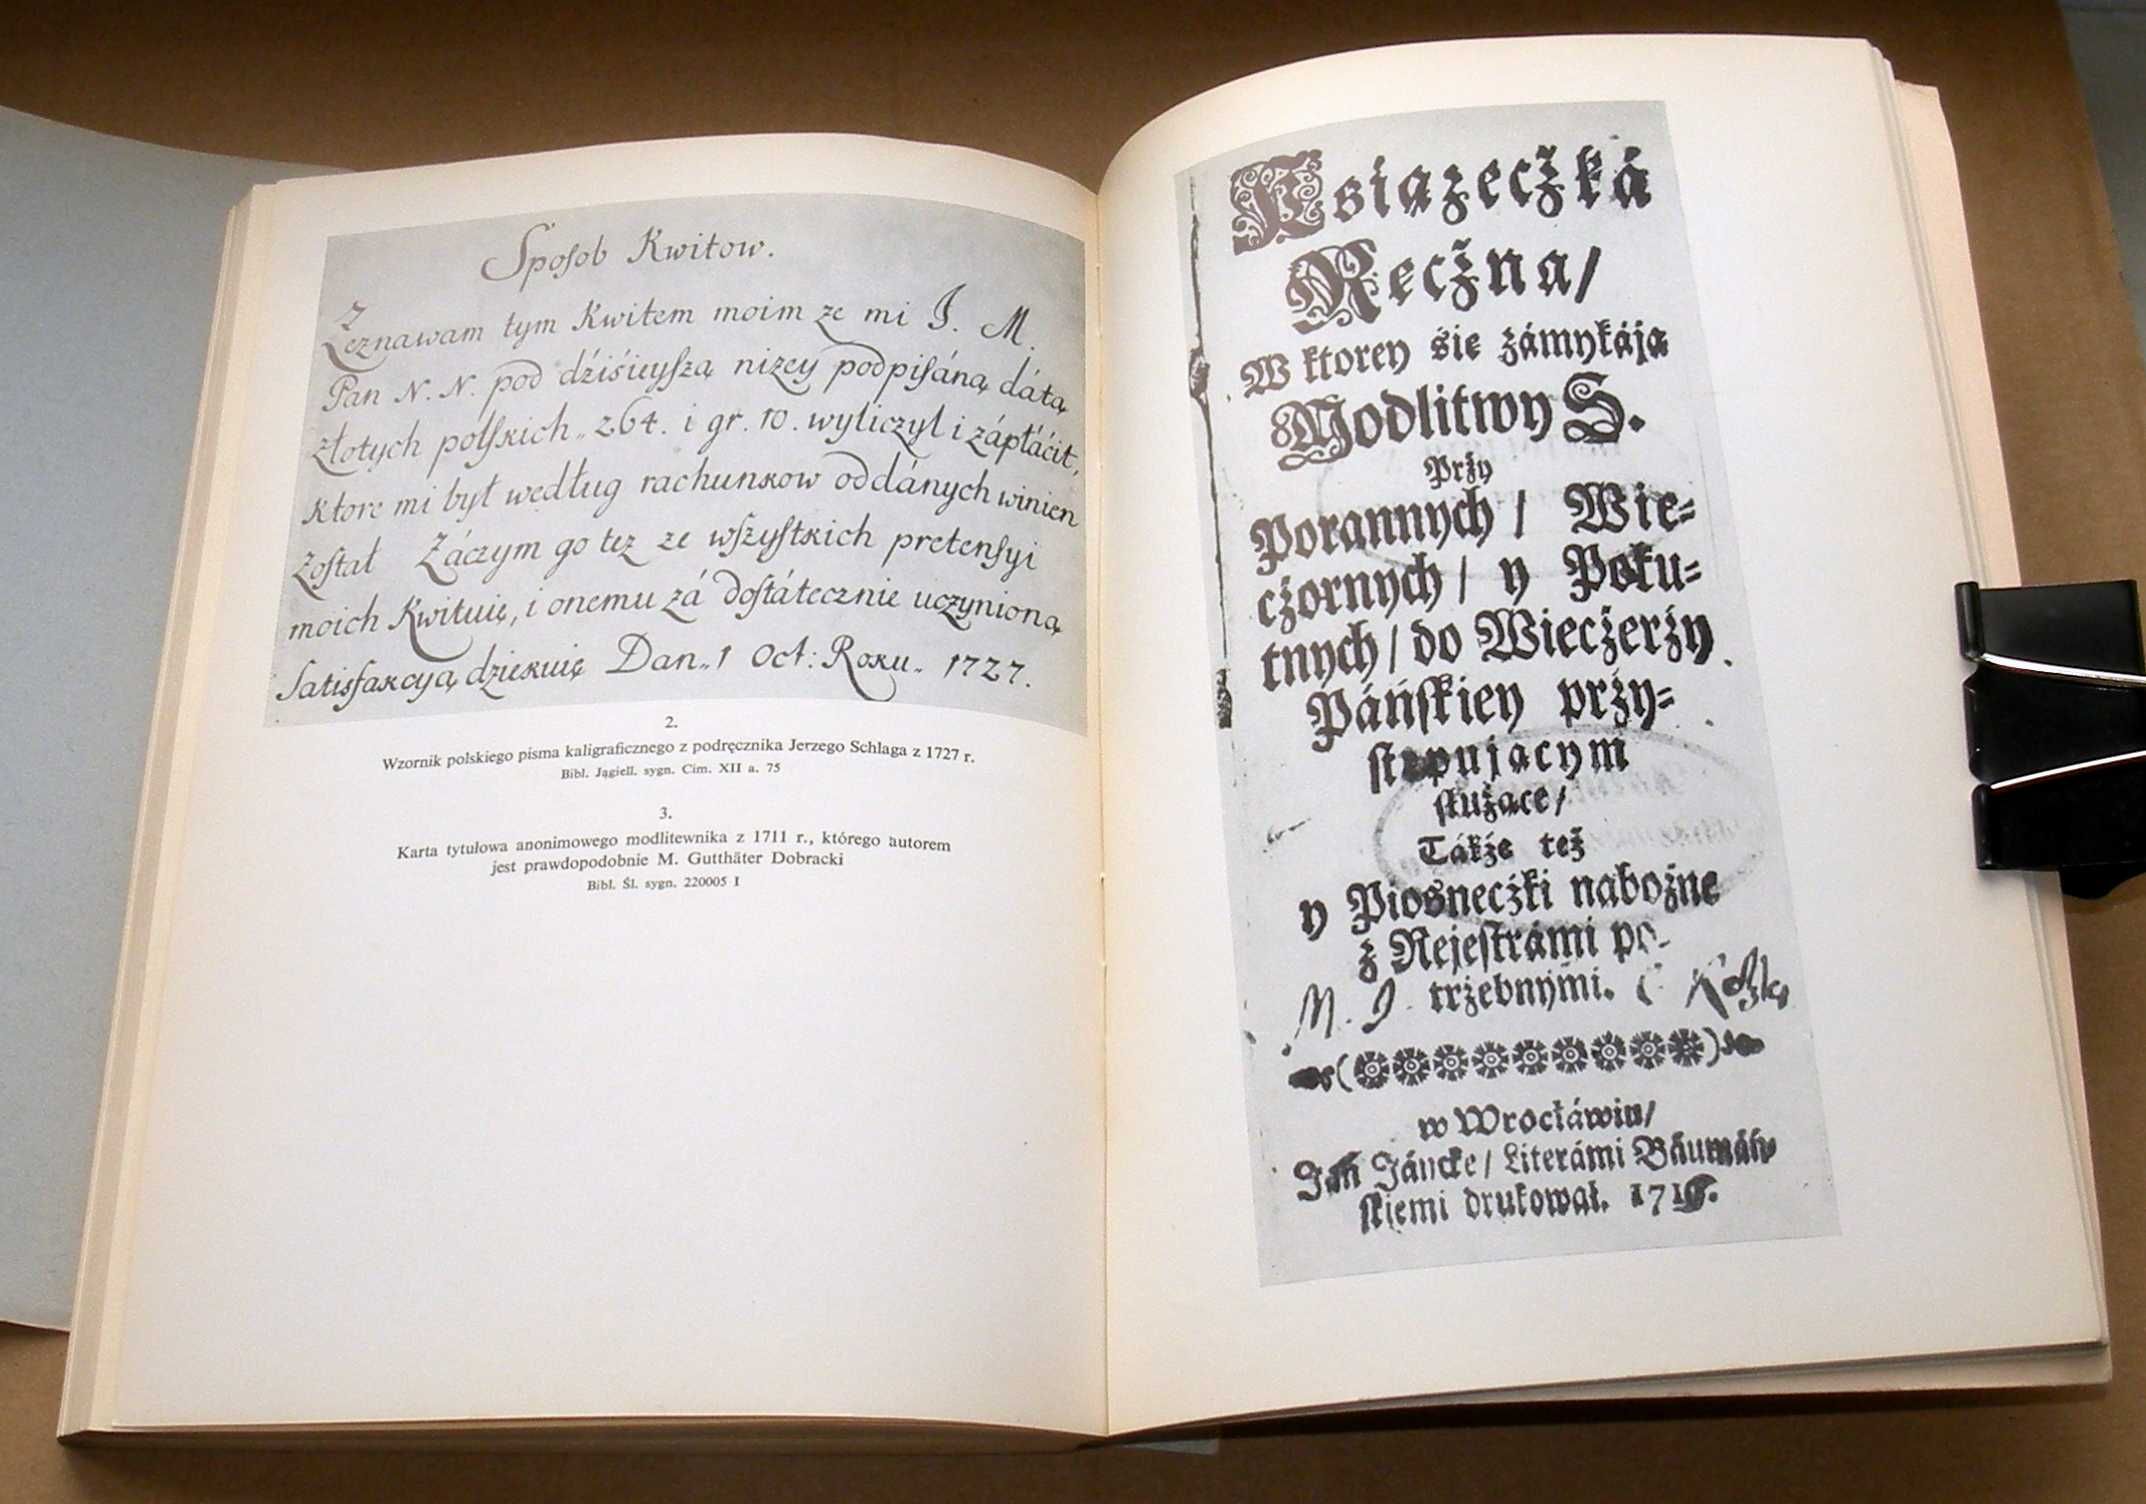 Sposob Kwitow.
Zeznawam tym Kwitem moim ze mi J. M.
Pan N. N. pod dźiśieyszą nizey podpisáną dátą
złotych polskich „ 264. i gr. 10. wyliczył i zápłáćił,
Ktore mi był według rachunkow oddánych winien
został Záczym go tez ze wszystkich pretensyi
moich Kwituię, i onemu zá dostátecznie uczynioną
Satisfakcyą dziekuię Dan„ 1 Oct: Roku„ 1727.
2.
Wzornik polskiego pisma kaligraficznego z podręcznika Jerzego Schlaga z 1727 r.
Bibl. Jagiell. sygn. Cim. XII a. 75
3.
Karta tytułowa anonimowego modlitewnika z 1711 r., którego autorem
jest prawdopodobnie M. Gutthäter Dobracki
Bibl. Śl. sygn. 220005 I
Ksiązeczká
Ręczna/
W ktorey się zámykáją
Modlitwy S.
Przy
Porannych / Wie=
czornych / y Poku=
tnych / do Wieczerzy
Páńskiey przy=
stępującym
służące/
Tákże też
y Piosneczki nabożne
z Rejestrámi po-
trzebnymi.
M. J.
w Wrocłáwiu/
Jan Jáncke / Literámi Báumáń-
skiemi drukował.